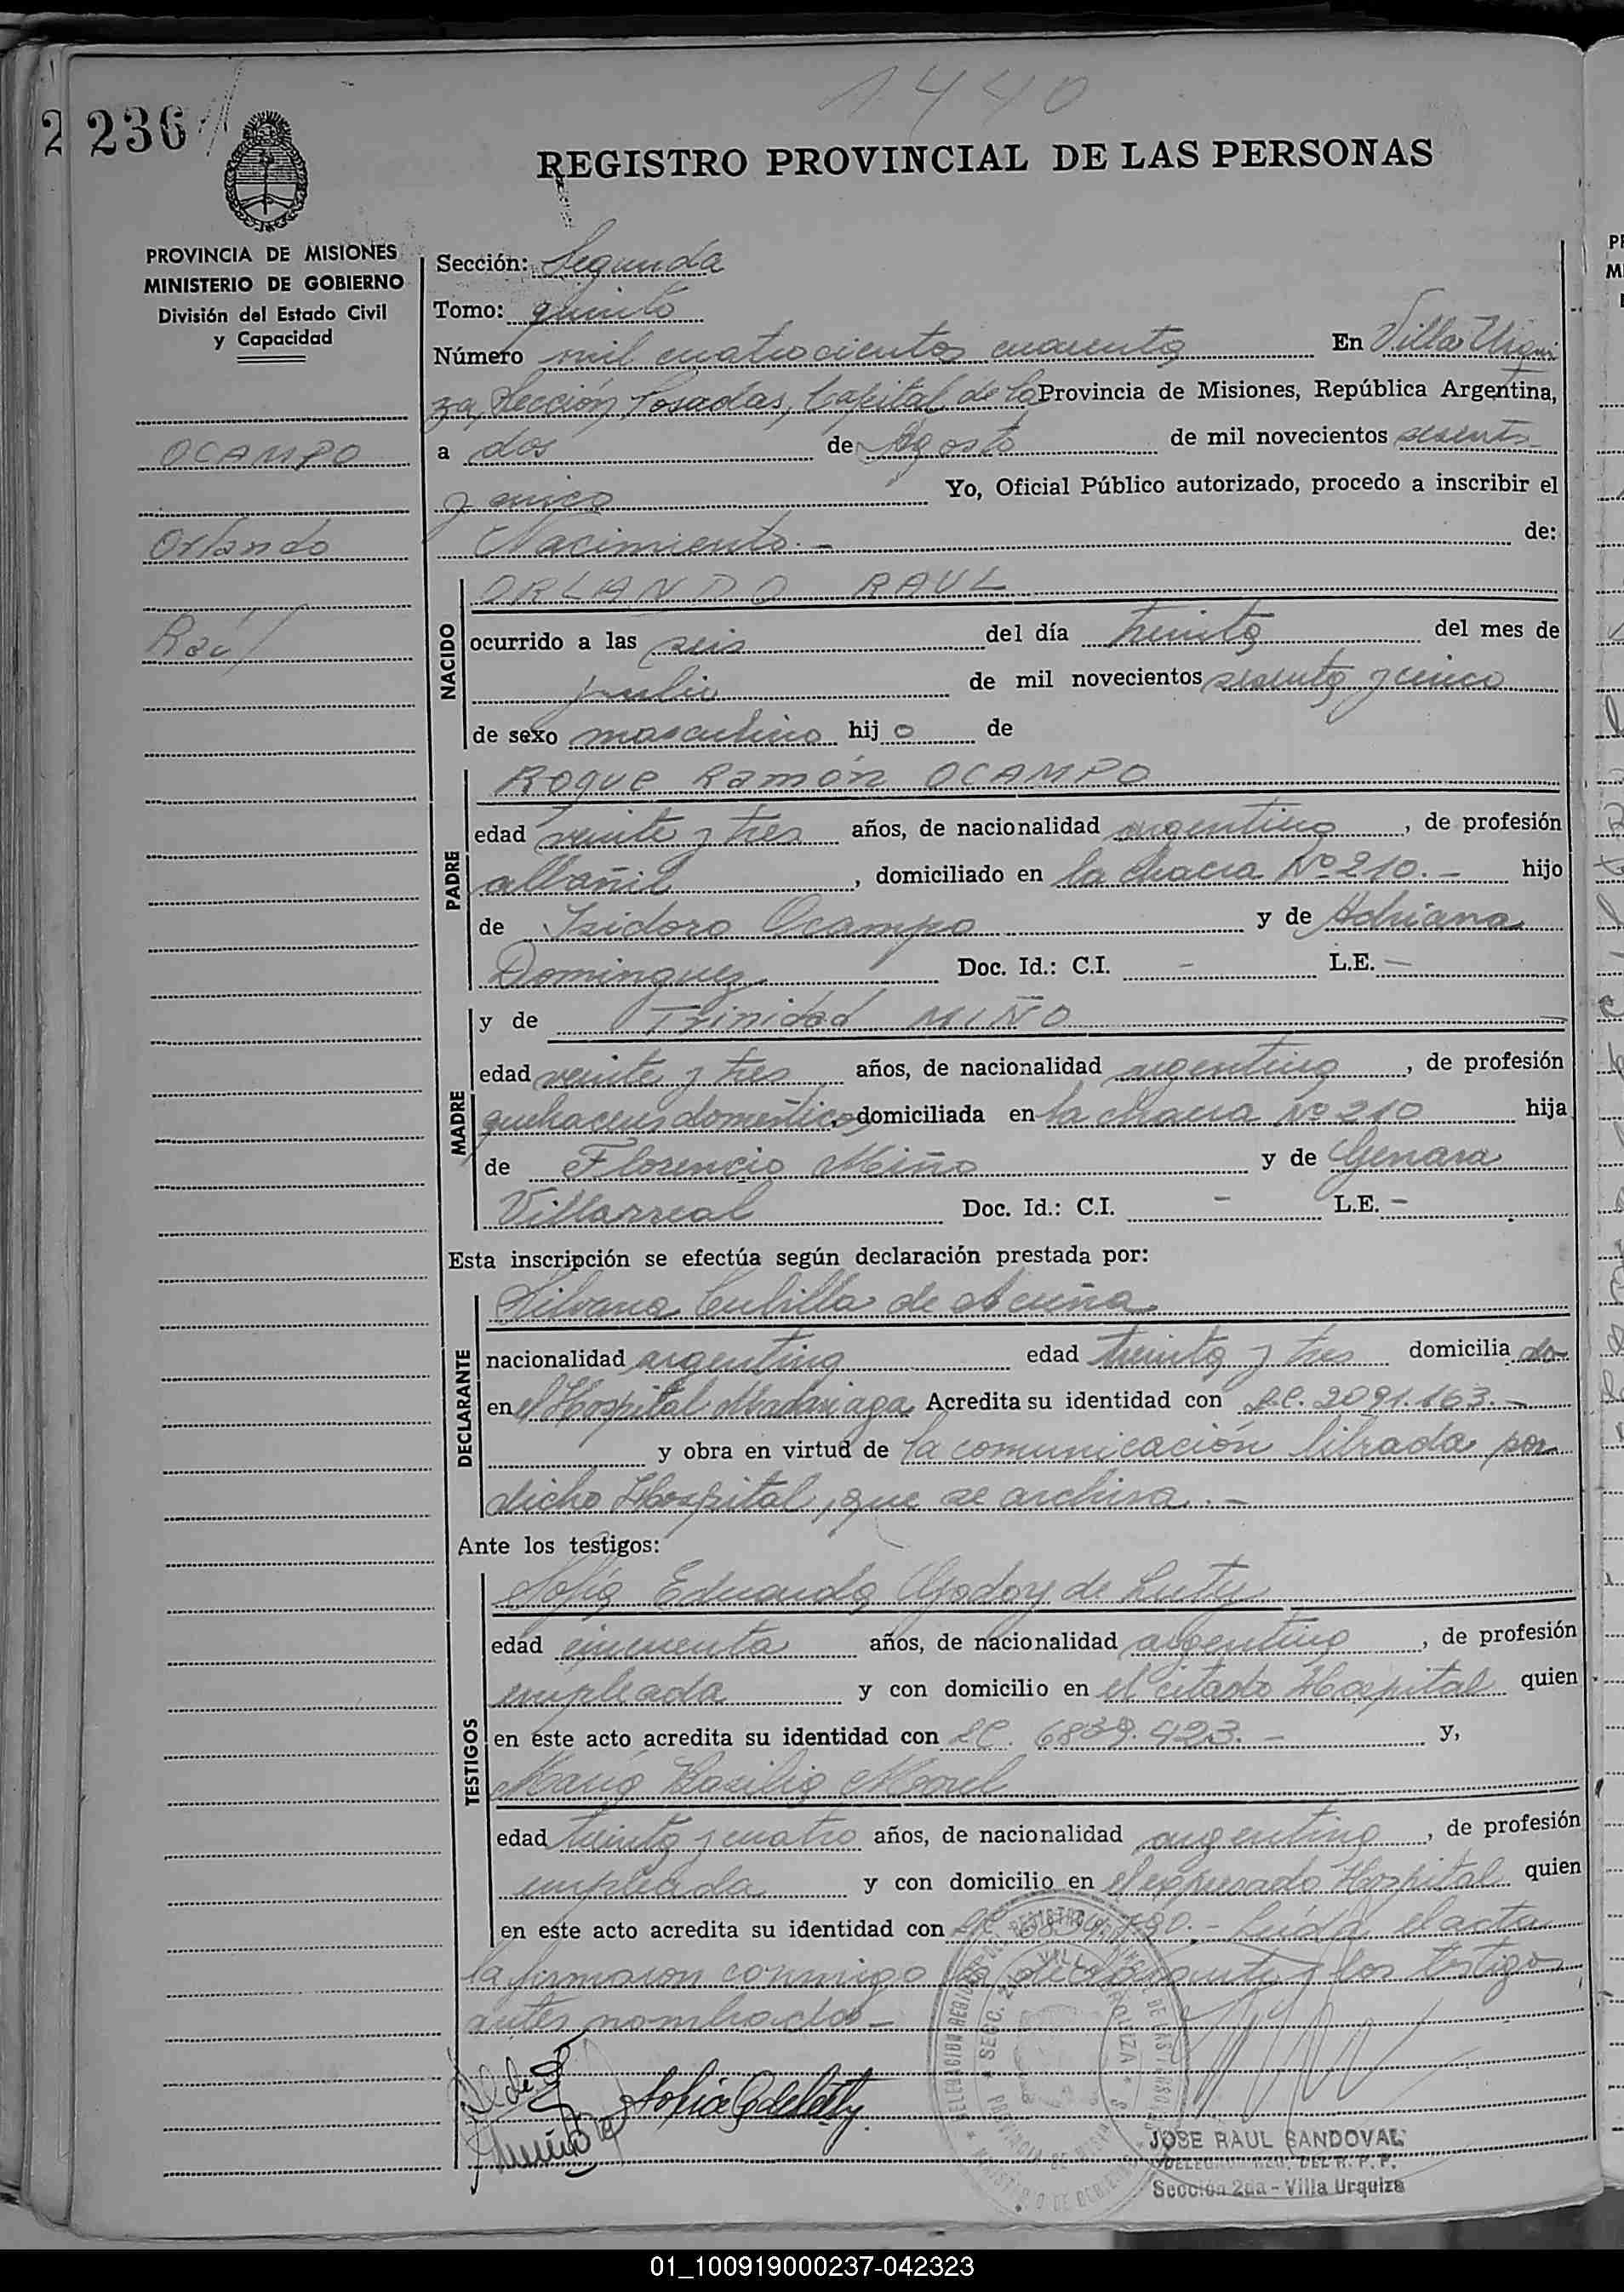 1440
2 236
REGISTRO PROVINCIAL DE LAS PERSONAS
PROVINCIA DE MISIONES
MINISTERIO DE GOBIERNO
División del Estado Civil
y Capacidad
OCAMPO
Orlando
Raúl
Sección: Segunda
Tomo: quinto
Número mil cuatrocientos cuarenta En Villa Urqui
za, Sección Posadas, Capital de la Provincia de Misiones, República Argentina,
a dos de Agosto de mil novecientos sesenta
y cinco Yo, Oficial Público autorizado, procedo a inscribir el
Nacimiento.- de:
NACIDO
ORLANDO RAUL
ocurrido a las seis del día treinta del mes de
julio de mil novecientos sesenta y cinco
de sexo masculino hijo de
PADRE
Roque Ramón OCAMPO
edad veinte y tres años, de nacionalidad argentina, de profesión
albañil, domiciliado en la chacra Nº 210.- hijo
de Isidoro Ocampo y de Adriana
Dominguez Doc. Id.: C.I. - L.E. -
MADRE
y de Trinidad MIÑO
edad veinte y tres años, de nacionalidad argentina, de profesión
quehaceres domésticos domiciliada en la chacra Nº 210 hija
de Florencio Miño y de Genara
Villarreal Doc. Id.: C.I. - L.E. -
Esta inscripción se efectúa según declaración prestada por:
DECLARANTE
Silvana Cubilla de Acuña
nacionalidad argentina edad treinta y tres domicilia da
en el Hospital Madariaga Acredita su identidad con L.C. 2091.163.-
y obra en virtud de la comunicación librada por
dicho Hospital, que se archiva.-
Ante los testigos:
TESTIGOS
Sofía Eduarda Godoy de Luty
edad cincuenta años, de nacionalidad argentina, de profesión
empleada y con domicilio en el citado Hospital quien
en este acto acredita su identidad con LC. 6839.423.- y,
María Basilia Morel
edad treinta y cuatro años, de nacionalidad argentina, de profesión
empleada y con domicilio en el expresado Hospital quien
en este acto acredita su identidad con Leída el acta
la firmaron conmigo la declarante y los testigos
antes nombrados-
SECC. 2da. VILLA URQUIZA
PROVINCIA DE MISIONES
MINISTERIO DE GOBIERNO
JOSE RAUL SANDOVAL
DELEGADO REG. DEL R. P. P.
Sección 2da - Villa Urquiza
01_100919000237-042323